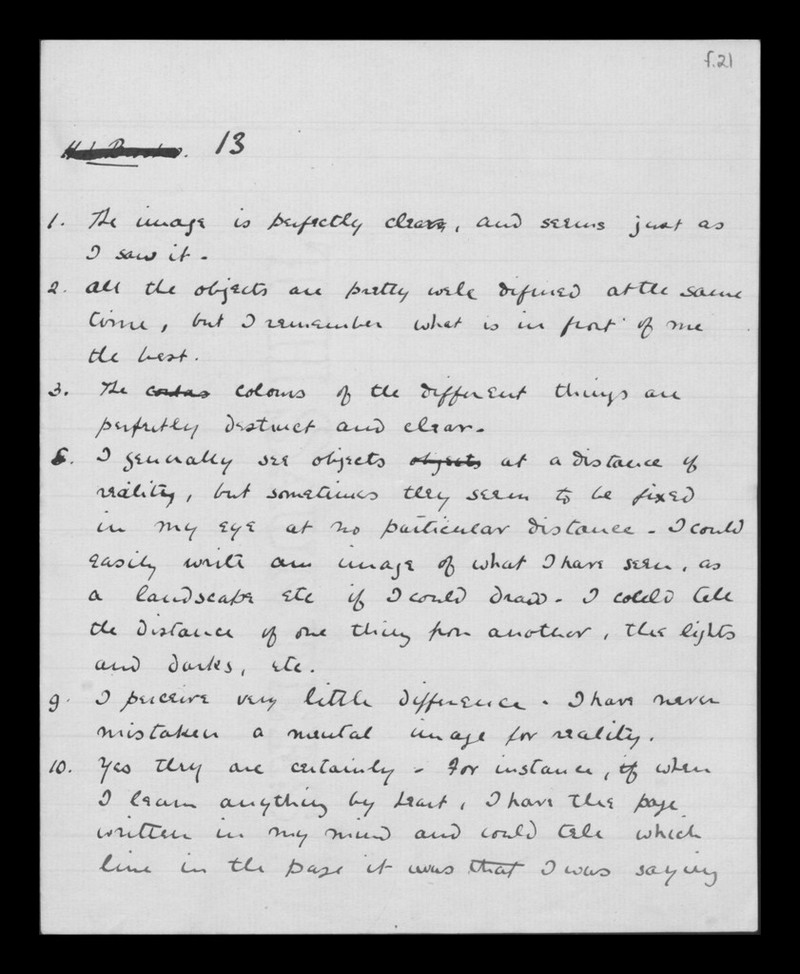 f.21
13
1. The image is perfectly clear, and seems just as
I saw it.
2. All the objects are pretty well defined at the same
time, but I remember what is in front of me
the best.
3. The colours of the different things are
perfectly destinct and clear.
6. I generally see objects objects at a distance of
reality, but sometimes they seem to be fixed
in my eye at no particular distance. I could
easily write an image of what I have seen, as
a landscape etc if I could draw. I could tell
the distance of one thing from another, the lights
and darks, etc.
9. I perceive very little difference. I have never
mistaken a mental image for reality.
10. Yes they are certainly. For instance, if when
I learn anything by heart, I have the page
written in my mind and could tell which
line in the page it was that I was saying